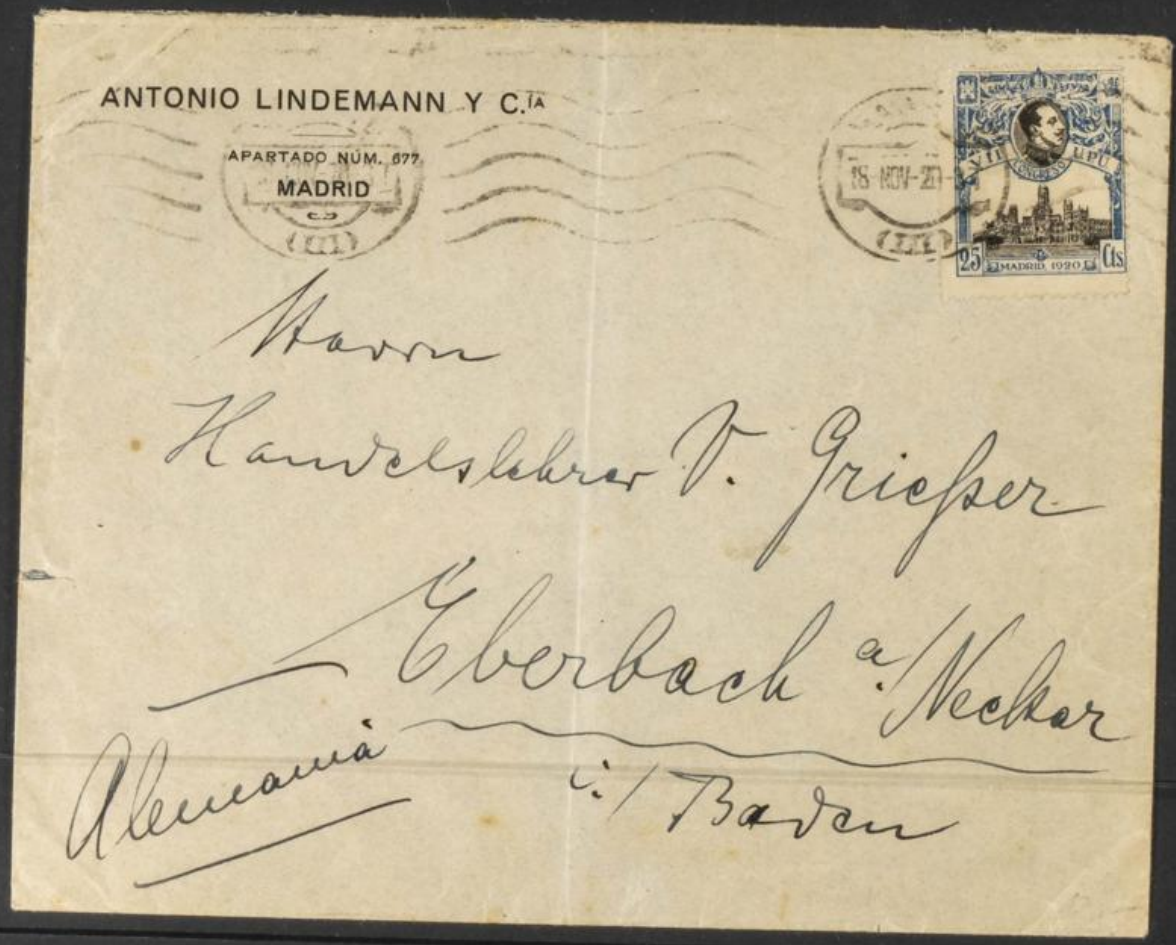 ANTONIO LINDEMANN Y C.ÍA
APARTADO NÚM. 677
MADRID
(III)
18 NOV-20
(III)
VII CONGRESO UPU
25 MADRID 1920 Cts
Herrn
Handelslehrer V. Grießer
Eberbach a/Neckar
i./Baden
Alemania